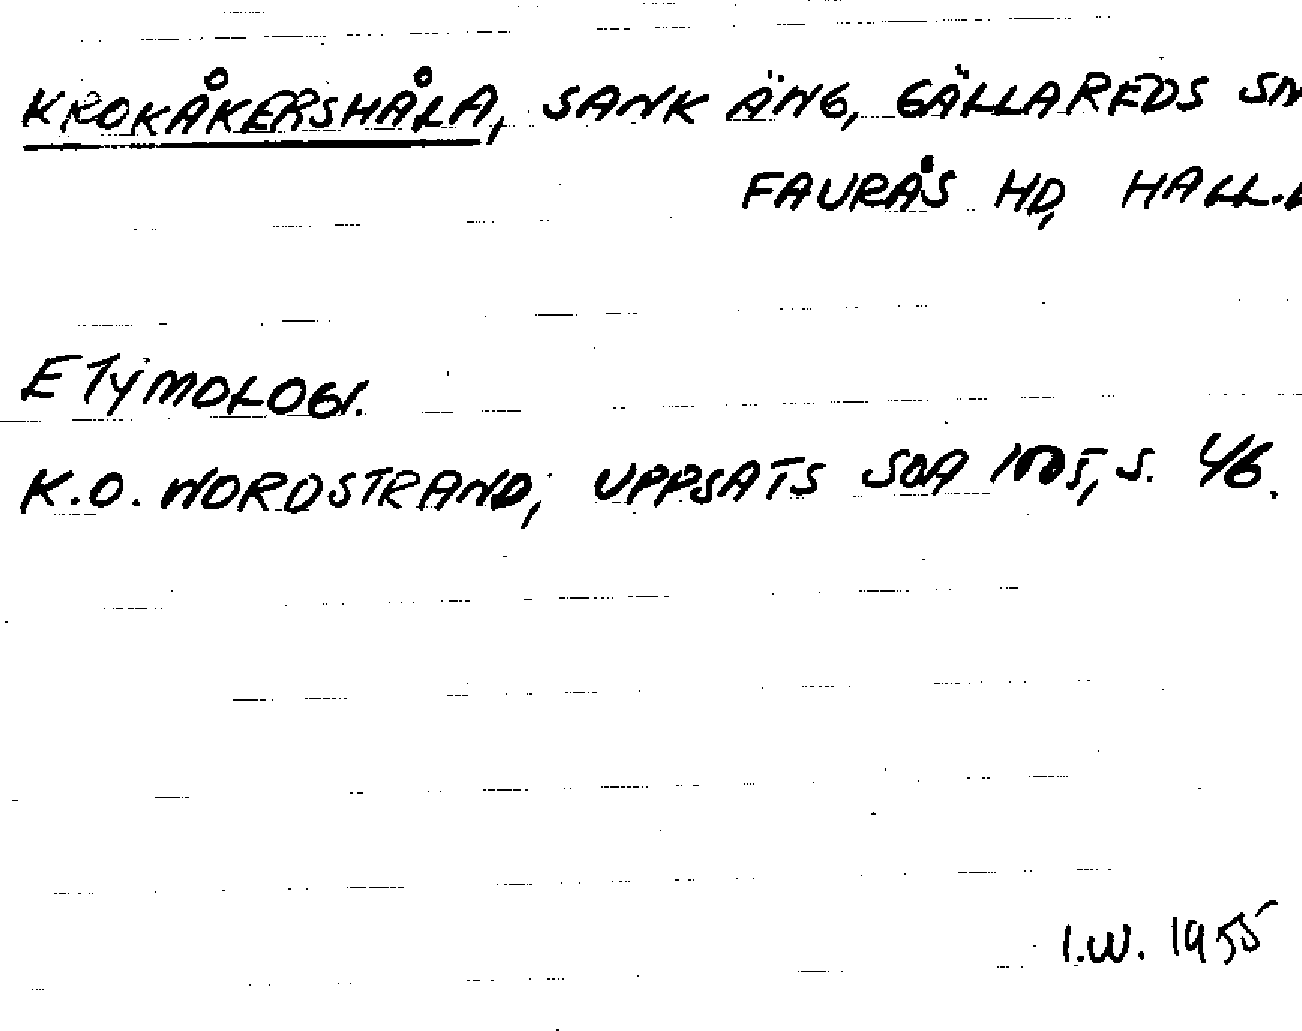 KROKÅKERSHÅLA, SANK ÄNG, GÄLLAREDS SN
FAURÅS HD, HALL.L
ETYMOLOGI.
K.O. NORDSTRAND, UPPSATS SOA 1005, S. 46.
I.W. 1955